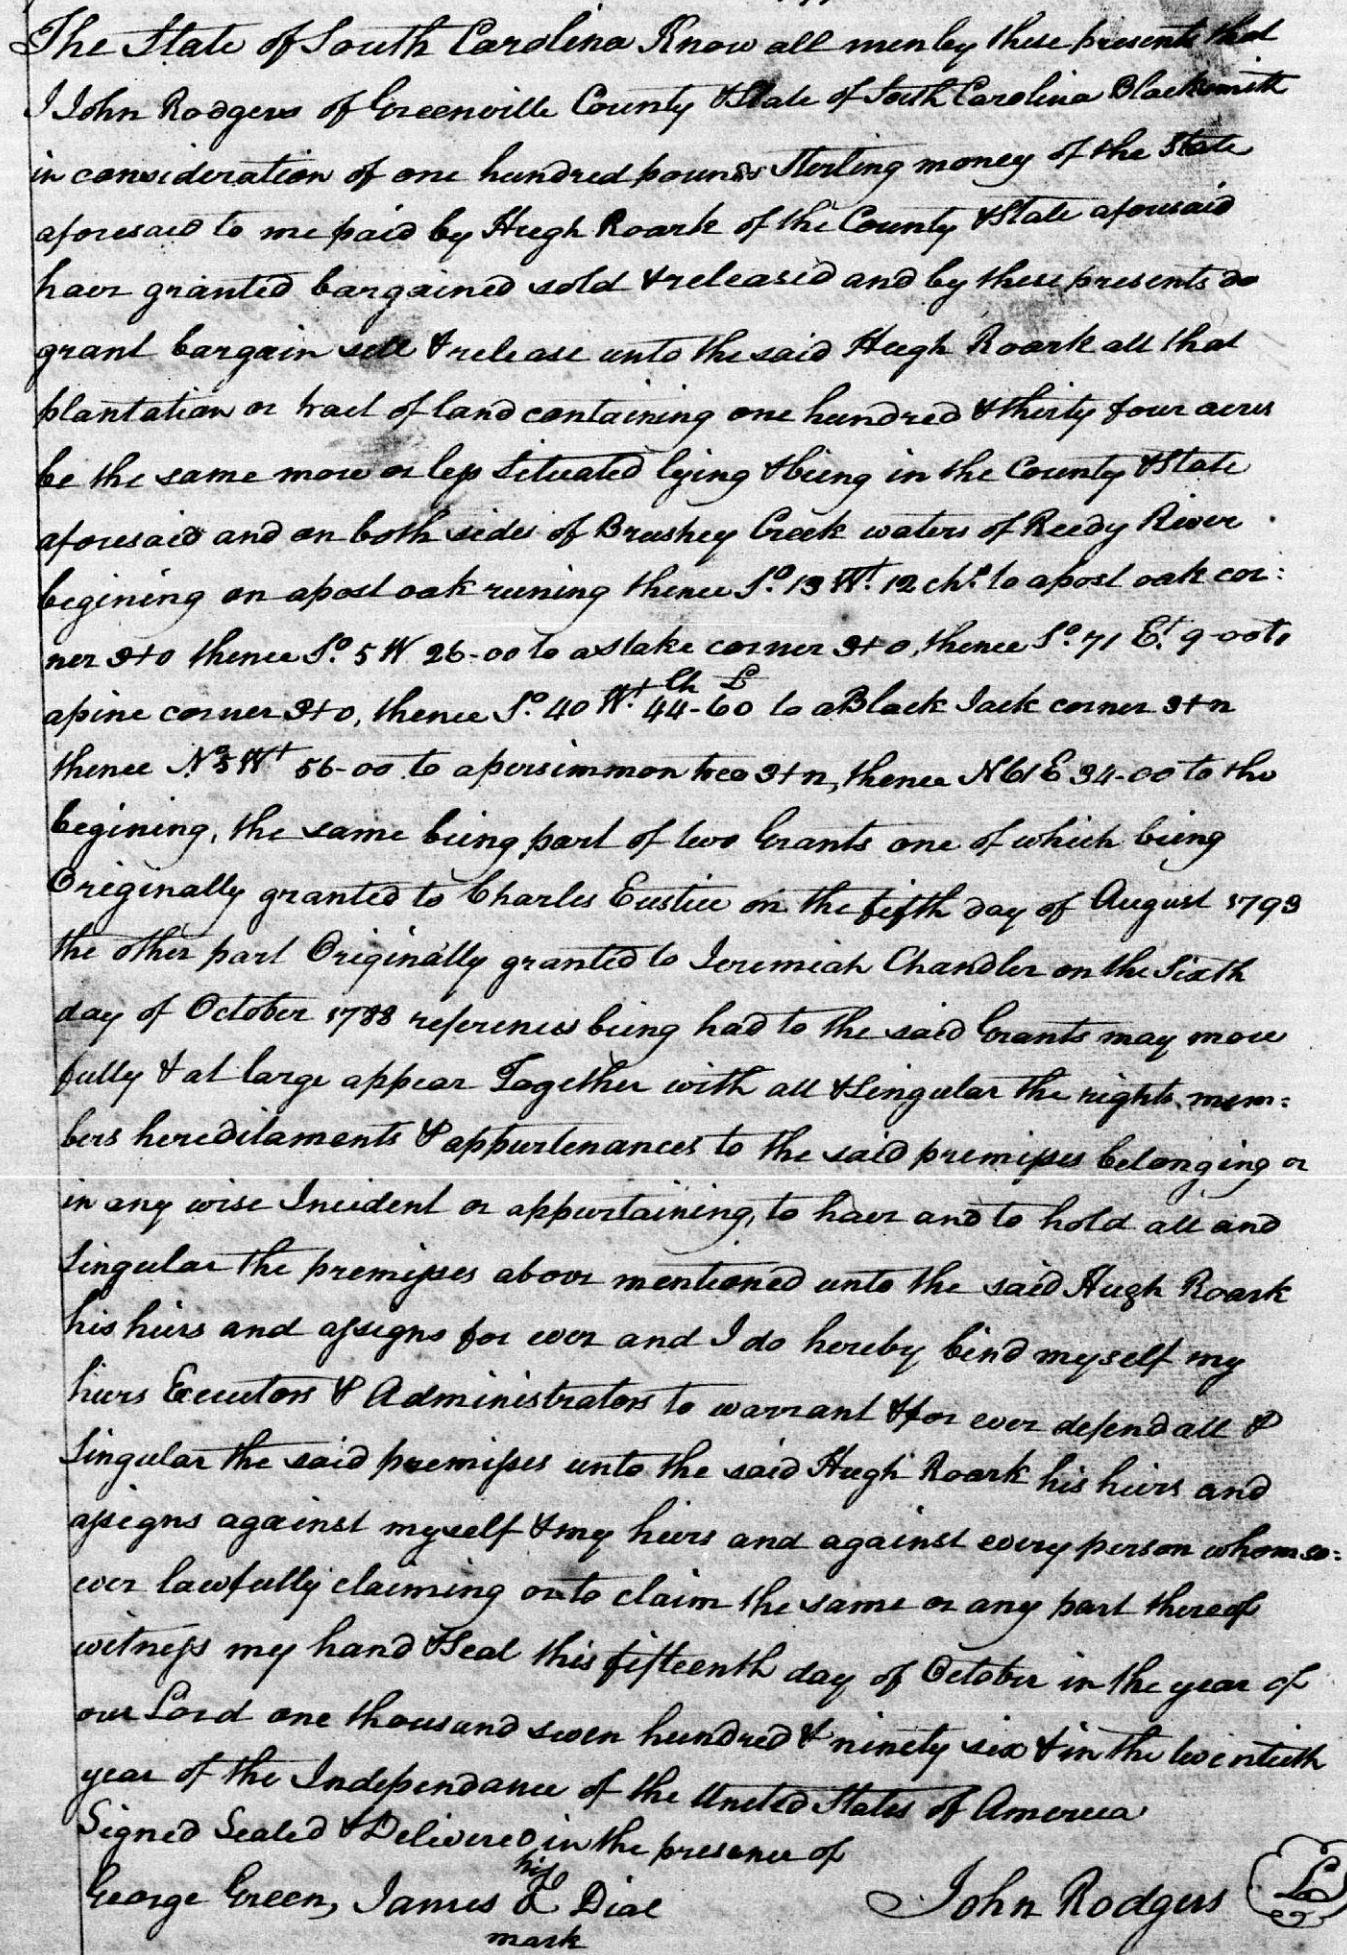 The State of South Carolina Know all men by these presents that
I John Rodgers of Greenville County & State of South Carolina Blacksmith
in consideration of one hundred pounds Sterling money of the State
aforesaid to me paid by Hugh Roark of the County & State aforesaid
have granted bargained sold & released and by these presents do
grant bargain sell & release unto the said Hugh Roark all that
plantation or tract of land containing one hundred & thirty four acres
be the same more or less Situated lying & being in the County & State
aforesaid and on both sides of Brushey Creek waters of Reedy River
begining on a post oak runing thence So. 13 Wt. 12 chs. to a post oak cor:
ner 3+0 thence So. 5 W 26-00 to a stake corner 3+0, thence So. 71 Et. 9-00 to
Ch L
a pine corner 3+0, thence So. 40 Wt. 44-60 to a Black Jack corner 3+n
thence No. 5 Wt 56-00 to a persimmon tree 3+n, thence N 61 E 34-00 to the
begining, the same being part of two Grants one of which being
Originally granted to Charles Eustice on the fifth day of August 1793
the other part Originally granted to Jeremiah Chandler on the Sixth
day of October 1788 references being had to the said Grants may more
fully & at large appear Together with all & Singular the rights mem:
bers hereditaments & appurtenances to the said premisses belonging or
in any wise Incident or appurtaining, to have and to hold all and
Singular the premisses above mentioned unto the said Hugh Roark
his heirs and assigns for ever and I do hereby bind myself my
heirs Executors & Administrators to warrant & for ever depend all &
Singular the said premisses unto the said Hugh Roark his heirs and
assigns against myself & my heirs and against every person whomso:
ever lawfully claiming or to claim the same or any part thereof
witness my hand & Seal this fifteenth day of October in the year of
our Lord one thousand seven hundred & ninety six & in the twentieth
year of the Independance of the United States of America
Signed Sealed & Delivered in the presence of
his
George Green, James Dial John Rodgers LS
mark